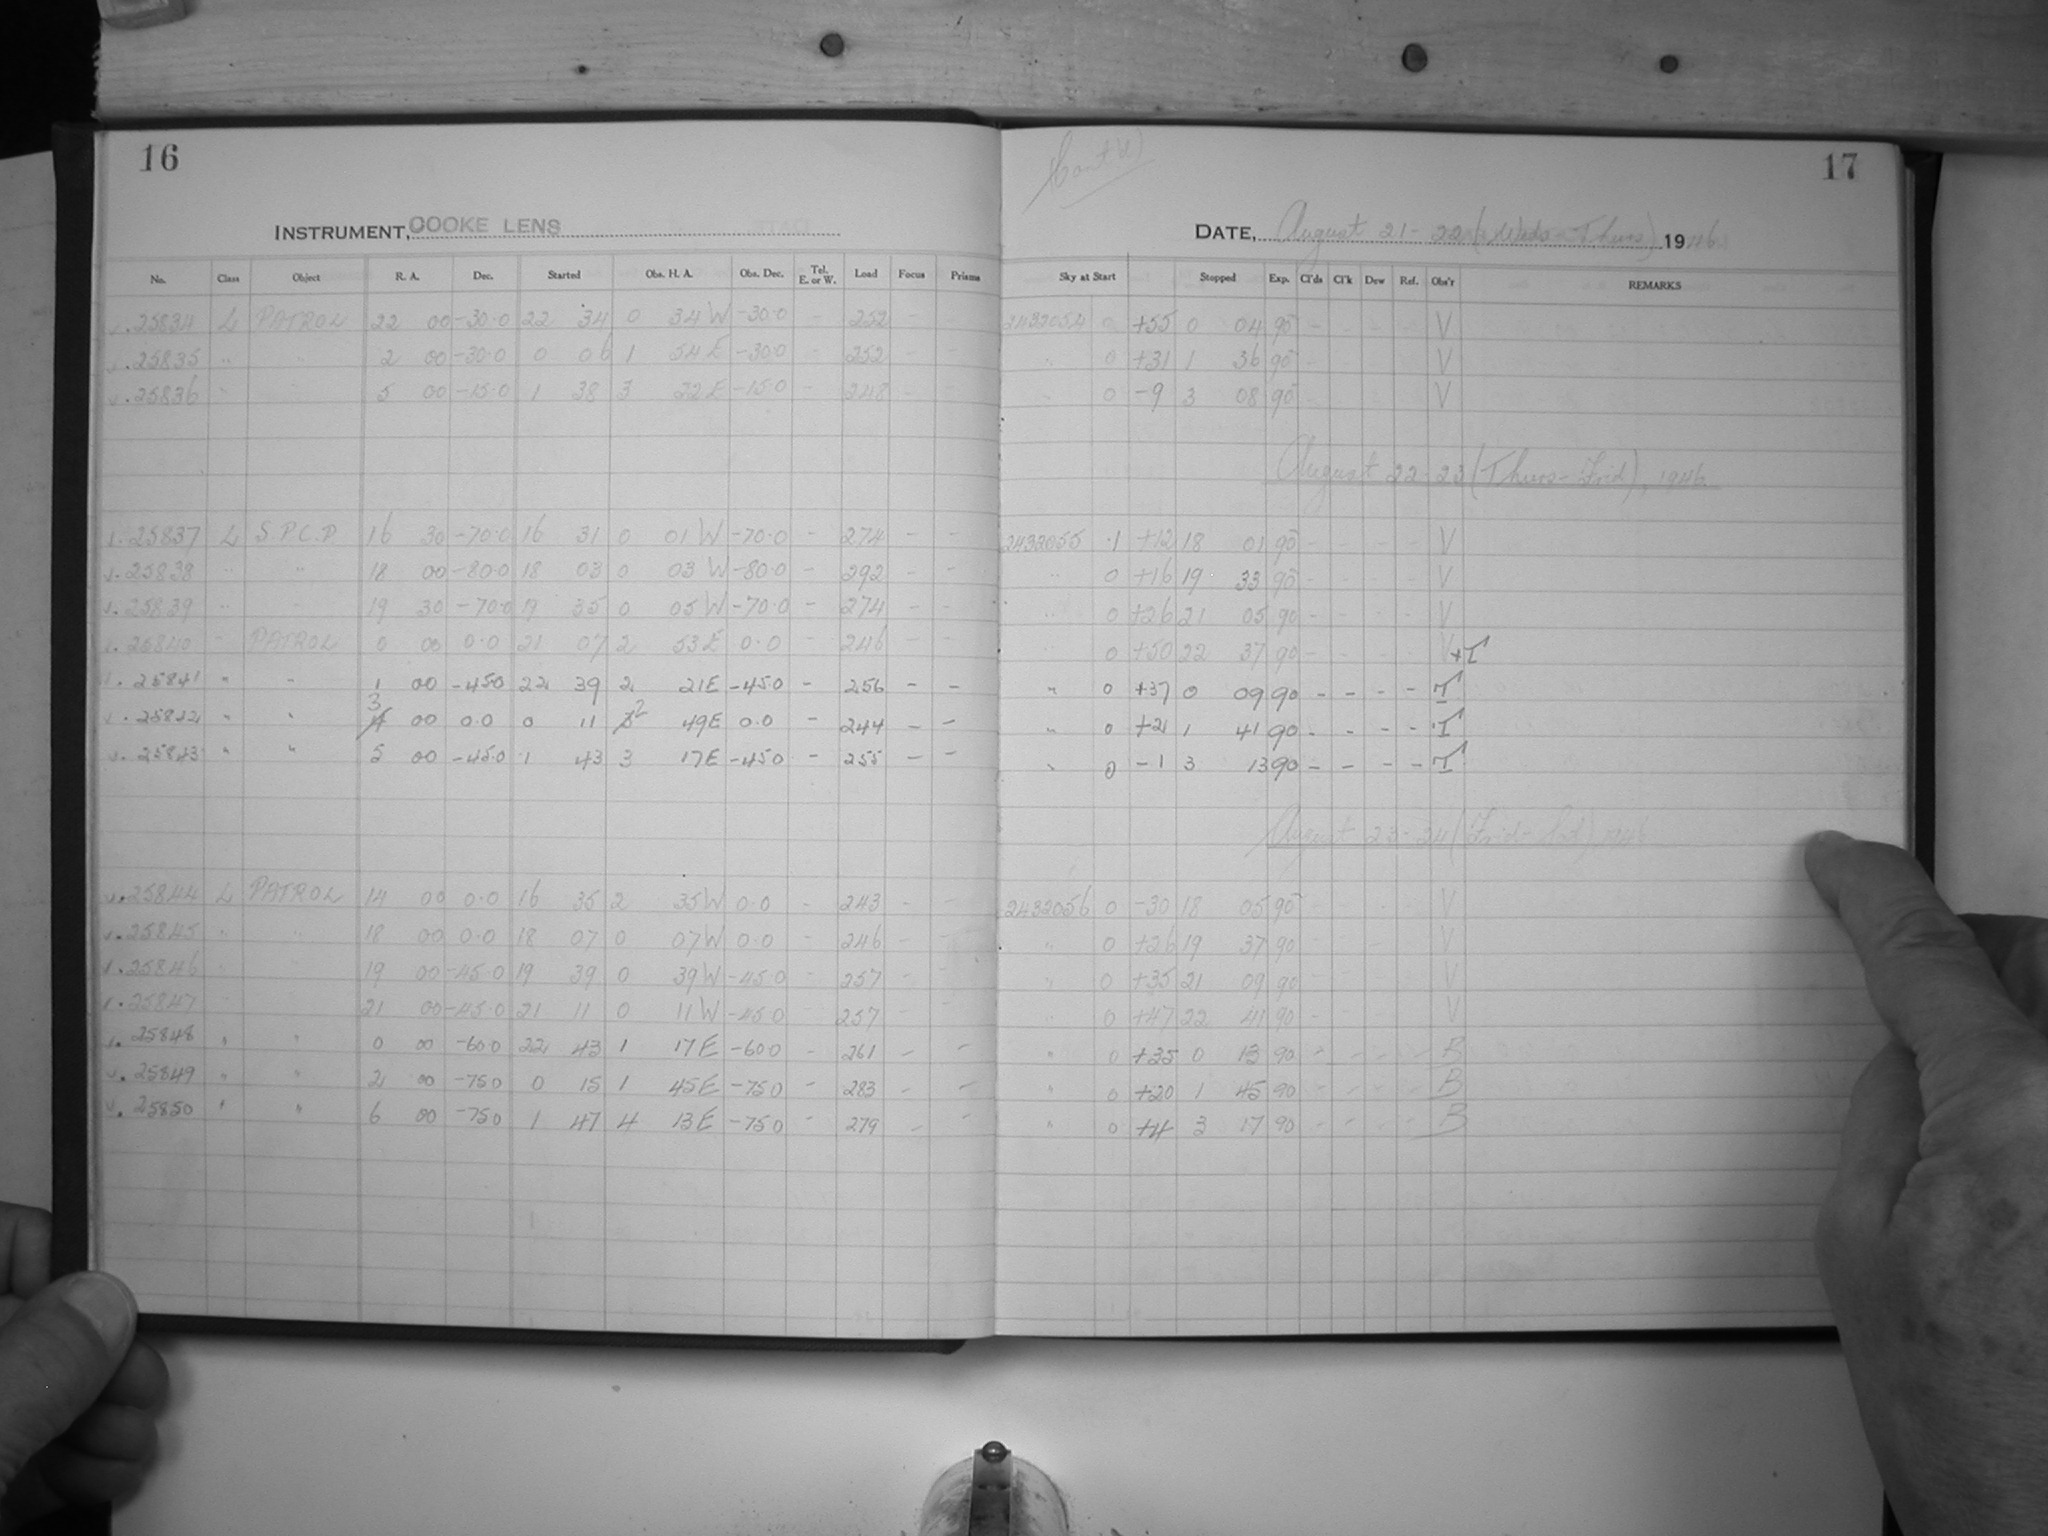 16
INSTRUMENT, COOKE LENS
No. Class Object R. A. Dec. Started Obs. H. A. Obs. Dec. Tel. E. or W. Load Focus Prisms
25834 L PATROL 22 00 -30.0 22 34 0 34 W -30.0 - 252 - -
25835 " " 2 00 -30.0 0 06 1 54 E -30.0 - 252 - -
25836 " " 5 00 -15.0 1 38 3 22 E -15.0 - 248 - -
25837 L S.P.C.P 16 30 -70.0 16 31 0 01 W -70.0 - 274 - -
25838 " " 18 00 -80.0 18 03 0 03 W -80.0 - 292 - -
25839 " " 19 30 -70.0 19 35 0 05 W -70.0 - 274 - -
25840 " PATROL 0 00 0.0 21 07 2 53 E 0.0 - 246 - -
25841 " " 1 00 -45.0 22 39 2 21 E -45.0 - 256 - -
25842 " " 3 00 0.0 0 11 2 49 E 0.0 - 244 - -
25843 " " 5 00 -45.0 1 43 3 17 E -45.0 - 255 - -
25844 L PATROL 14 00 0.0 16 35 2 35 W 0.0 - 243 - -
25845 " " 18 00 0.0 18 07 0 07 W 0.0 - 246 - -
25846 " " 19 00 -45.0 19 39 0 39 W -45.0 - 257 - -
25847 " " 21 00 -45.0 21 11 0 11 W -45.0 - 257 - -
25848 " " 0 00 -60.0 22 43 1 17 E -60.0 - 261 - -
25849 " " 2 00 -75.0 0 15 1 45 E -75.0 - 283 - -
25850 " " 6 00 -75.0 1 47 4 13 E -75.0 - 279 - -
(Cont'd)
17
DATE, August 21-22 (Weds-Thurs) 1946
Sky at Start Stopped Exp. Cl'ds Cl'k Dew Ref. Obs'r REMARKS
2432054 0 +55 0 04 90 - - - - V
" 0 +31 1 36 90 - - - - V
" 0 -9 3 08 90 - - - - V
August 22-23 (Thurs-Frid), 1946
2432055 .1 +12 18 01 90 - - - - V
" 0 +16 19 33 90 - - - - V
" 0 +26 21 05 90 - - - - V
" 0 +50 22 37 90 - - - - V+T
" 0 +37 0 09 90 - - - - T
" 0 +21 1 41 90 - - - - T
" 0 -1 3 13 90 - - - - T
August 23-24 (Frid-Sat) 1946
2432056 0 -30 18 05 90 - - - - V
" 0 +26 19 37 90 - - - - V
" 0 +35 21 09 90 - - - - V
" 0 +47 22 41 90 - - - - V
" 0 +35 0 13 90 - - - - B
" 0 +20 1 45 90 - - - - B
" 0 +4 3 17 90 - - - - B